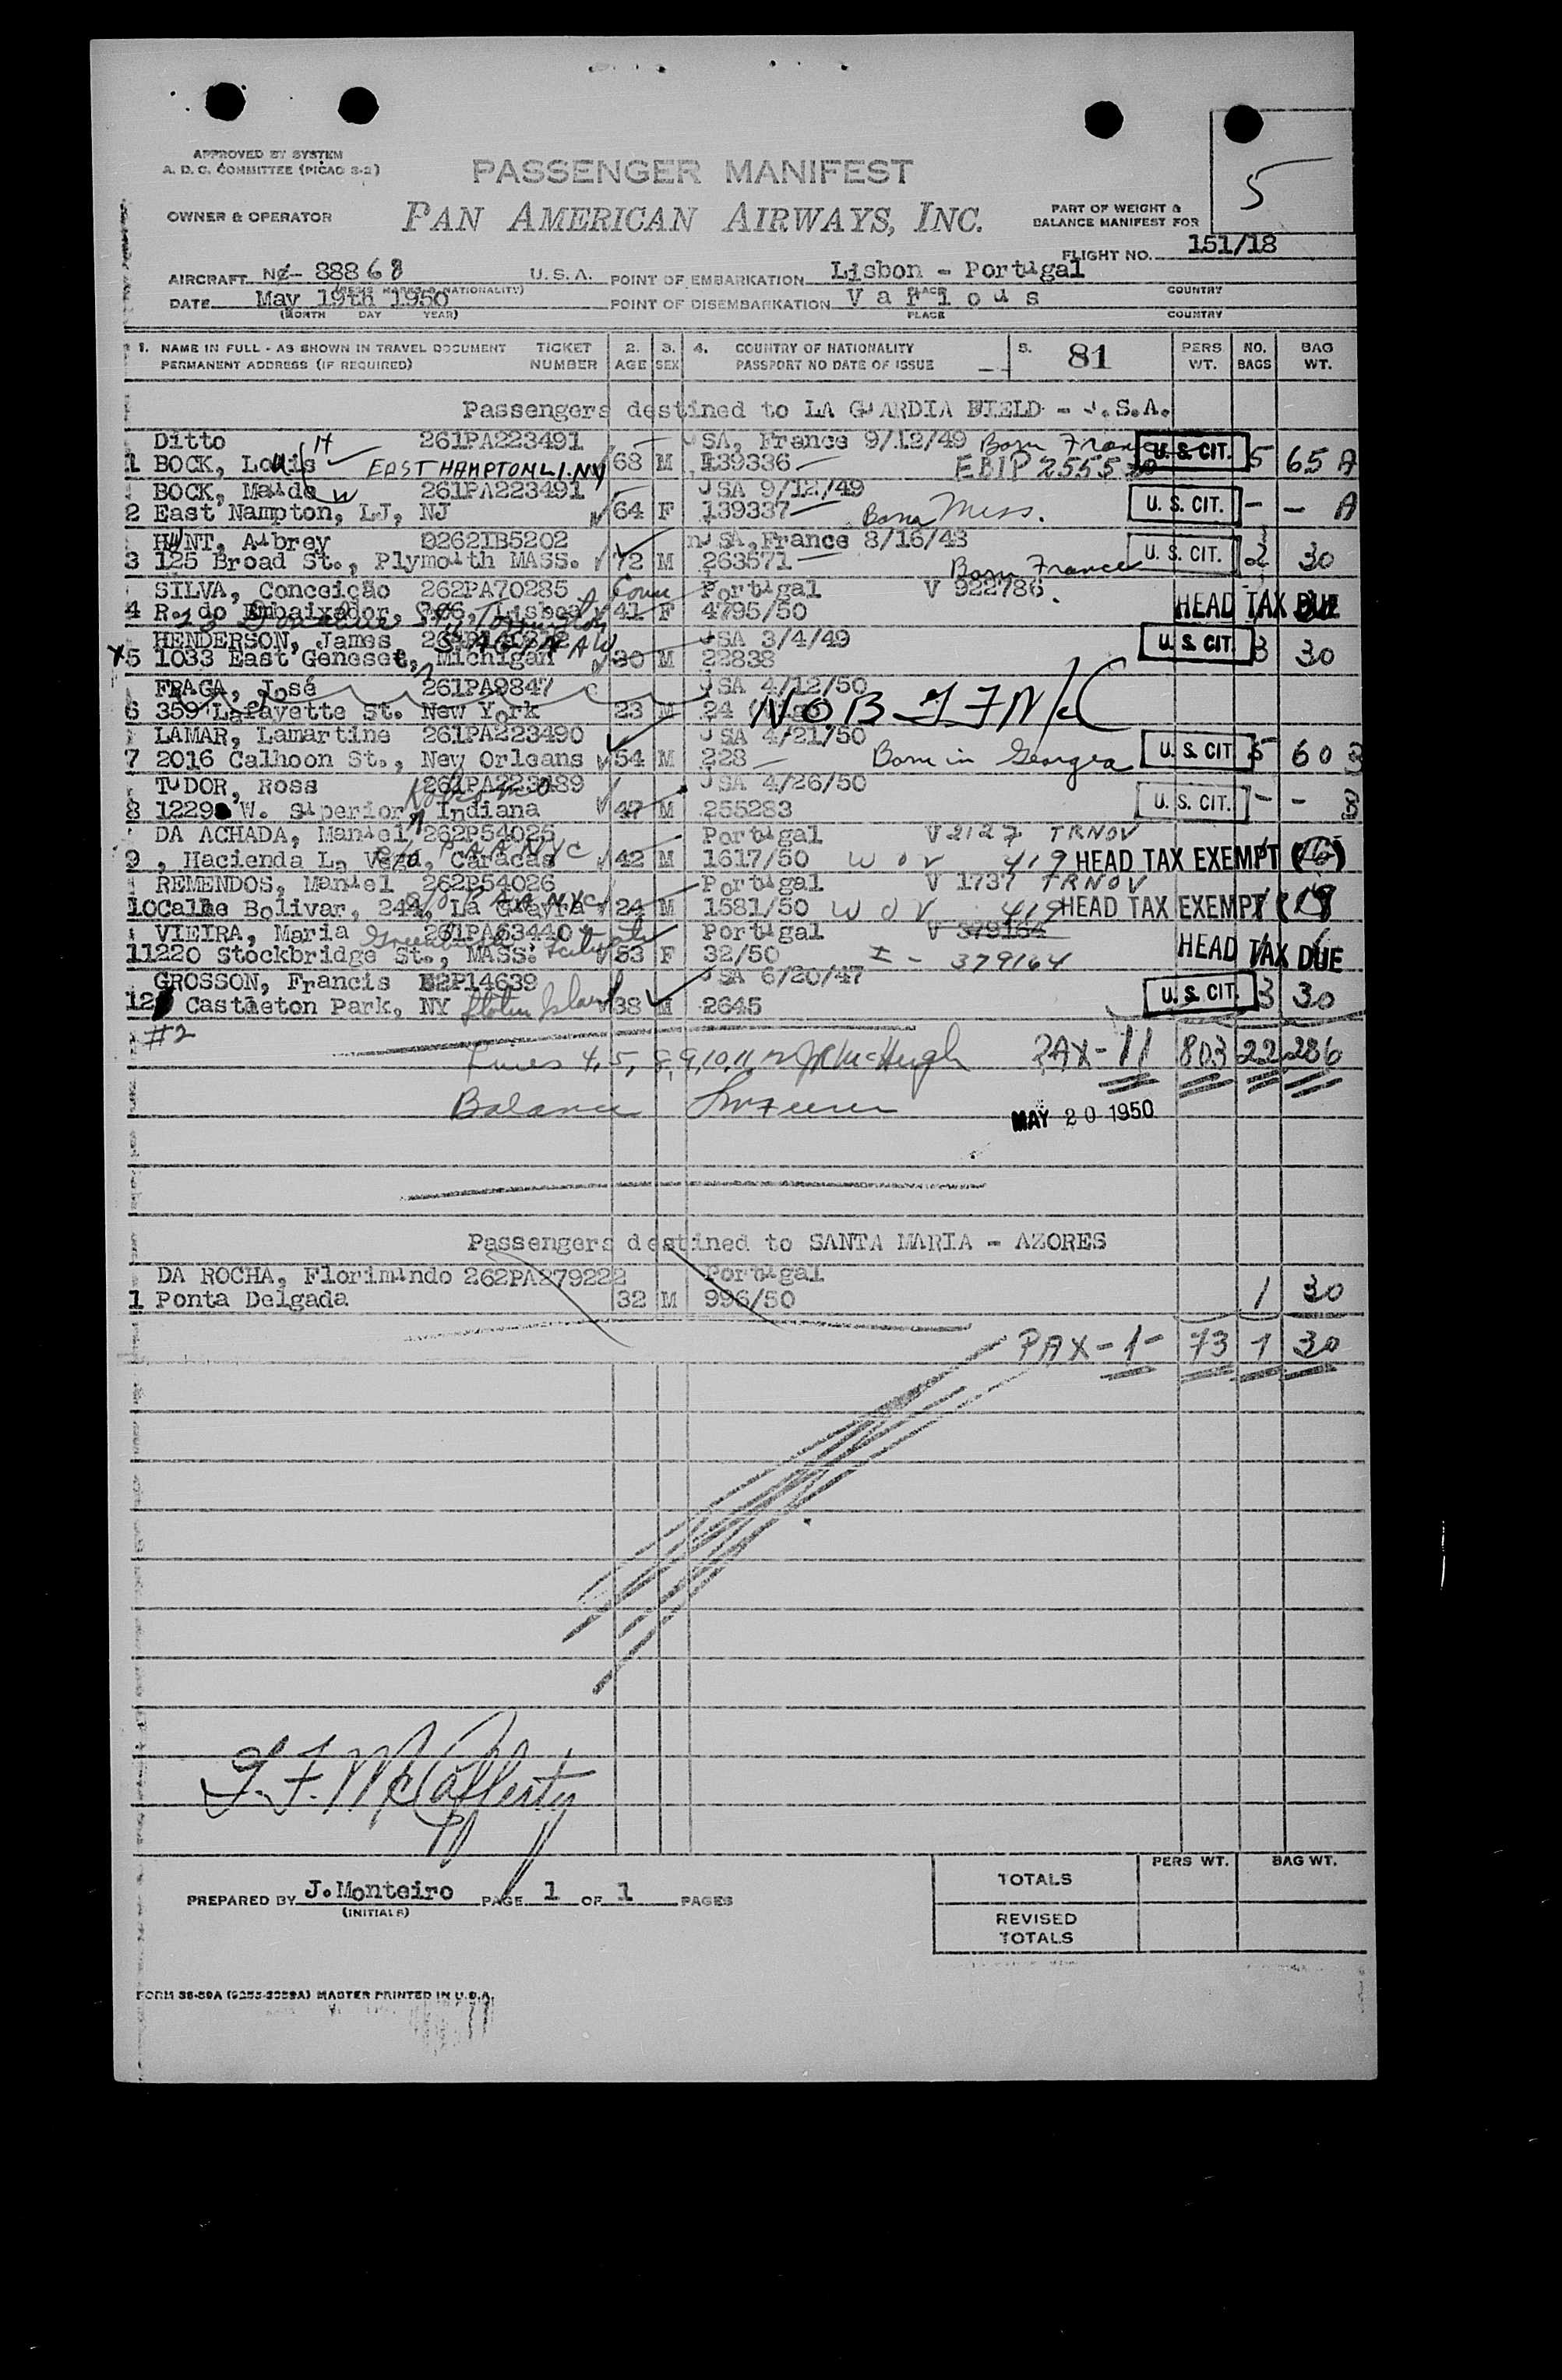 APPROVED BY SYSTEM
A. D. C. COMMITTEE (PICAO S-2)
PASSENGER MANIFEST
5
OWNER & OPERATOR
PAN AMERICAN AIRWAYS, INC.
PART OF WEIGHT &
BALANCE MANIFEST FOR
FLIGHT NO. 151/18
AIRCRAFT NC- 88868 U.S.A. POINT OF EMBARKATION Lisbon - Portugal
(REGIS MARKS & NATIONALITY) PLACE COUNTRY
DATE May 19th 1950 POINT OF DISEMBARKATION Various
(MONTH DAY YEAR) PLACE COUNTRY
1. NAME IN FULL - AS SHOWN IN TRAVEL DOCUMENT TICKET 2. 3. 4. COUNTRY OF NATIONALITY 5. 81 PERS NO. BAG
PERMANENT ADDRESS (IF REQUIRED) NUMBER AGE SEX PASSPORT NO DATE OF ISSUE WT. BAGS WT.
Passengers destined to LA GUARDIA FIELD - U.S.A.
Ditto H 261PA223491 USA, France 9/12/49 Born France U. S. CIT.
1 BOCK, Louis EAST HAMPTON L.I. NY 68 M 139336 5 65 A
BOCK, Maude W 261PA223491 USA 9/12/49 U. S. CIT.
2 East Nampton, LJ, NJ 64 F 139337 Born Miss. - - A
HUNT, Aubrey 0262IB5202 USA, France 8/16/48 U. S. CIT.
3 125 Broad St., Plymouth MASS. 72 M 263571 Born France 2 30
SILVA, Conceição 262PA70285 Conn Portugal V 922786
4 R. do Embaixador, Lisboa Torrington 41 F 4795/50 HEAD TAX DUE
HENDERSON, James SAGINAW USA 3/4/49 U. S. CIT.
X5 1033 East Genesee, Michigan 30 M 22838 3 30
FRAGA, José 261PA9847 USA 4/12/50
6 359 Lafayette St. New York 23 M 24 NOB TFMcC
LAMAR, Lamartine 261PA223490 USA 4/21/50
7 2016 Calhoon St., New Orleans 54 M 228 Born in Georgia U. S. CIT. 5 60 B
TUDOR, Ross 261PA223489 USA 4/26/50
8 1229 W. Superior, Kokomo Indiana 47 M 255283 U. S. CIT. - - B
DA ACHADA, Manuel 262P54025 Portugal V 2127 TRNOV
9 , Hacienda La Vega, Caracas c/o PAA NYC 42 M 1617/50 W O V 419 HEAD TAX EXEMPT
REMENDOS, Manuel 262P54026 Portugal V 1737 TRNOV
10 Calle Bolivar, 244, La Guayra c/o PAA NYC 24 M 1581/50 W O V 419 HEAD TAX EXEMPT
VIEIRA, Maria 261PA63440 Portugal V 379164
11 220 Stockbridge St., MASS. 53 F 32/50 I - 379164 HEAD TAX DUE
GROSSON, Francis 62P14639 USA 6/20/47
12 Castleton Park, NY Staten Island 38 M 2645 U. S. CIT. 3 30
#2
Lines 4, 5, 8, 9, 10, 11, 12 McHugh PAX - 11 803 22 286
Balance
MAY 20 1950
Passengers destined to SANTA MARIA - AZORES
DA ROCHA, Florimundo 262PA279222 Portugal
1 Ponta Delgada 32 M 996/50 1 30
PAX - 1 - 73 1 30
T. F. McCafferty
PREPARED BY J.Monteiro PAGE 1 OF 1 PAGES
(INITIALS)
PERS WT. BAG WT.
TOTALS
REVISED
TOTALS
FORM 38-59A (9255-3059A) MASTER PRINTED IN U.S.A.